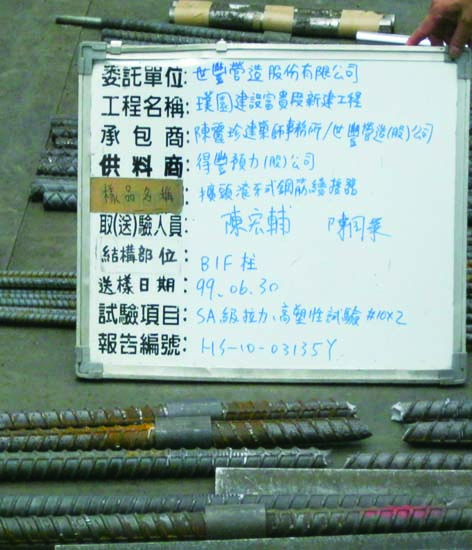 委託單位: 世豐營造股份有限公司
工程名稱: 璞園建設富貴段新建工程
承包商: 陳震珍建築師事務所/世豐營造(股)公司
供料商: 得豐預力(股)公司
樣品名稱: 擴頭滾牙式鋼筋續接器
取(送)驗人員: 陳宏輔
結構部位: B1F柱
送樣日期: 99.06.30
試驗項目: SA級拉力、高塑性試驗 #10x2
報告編號: HS-10-03135Y